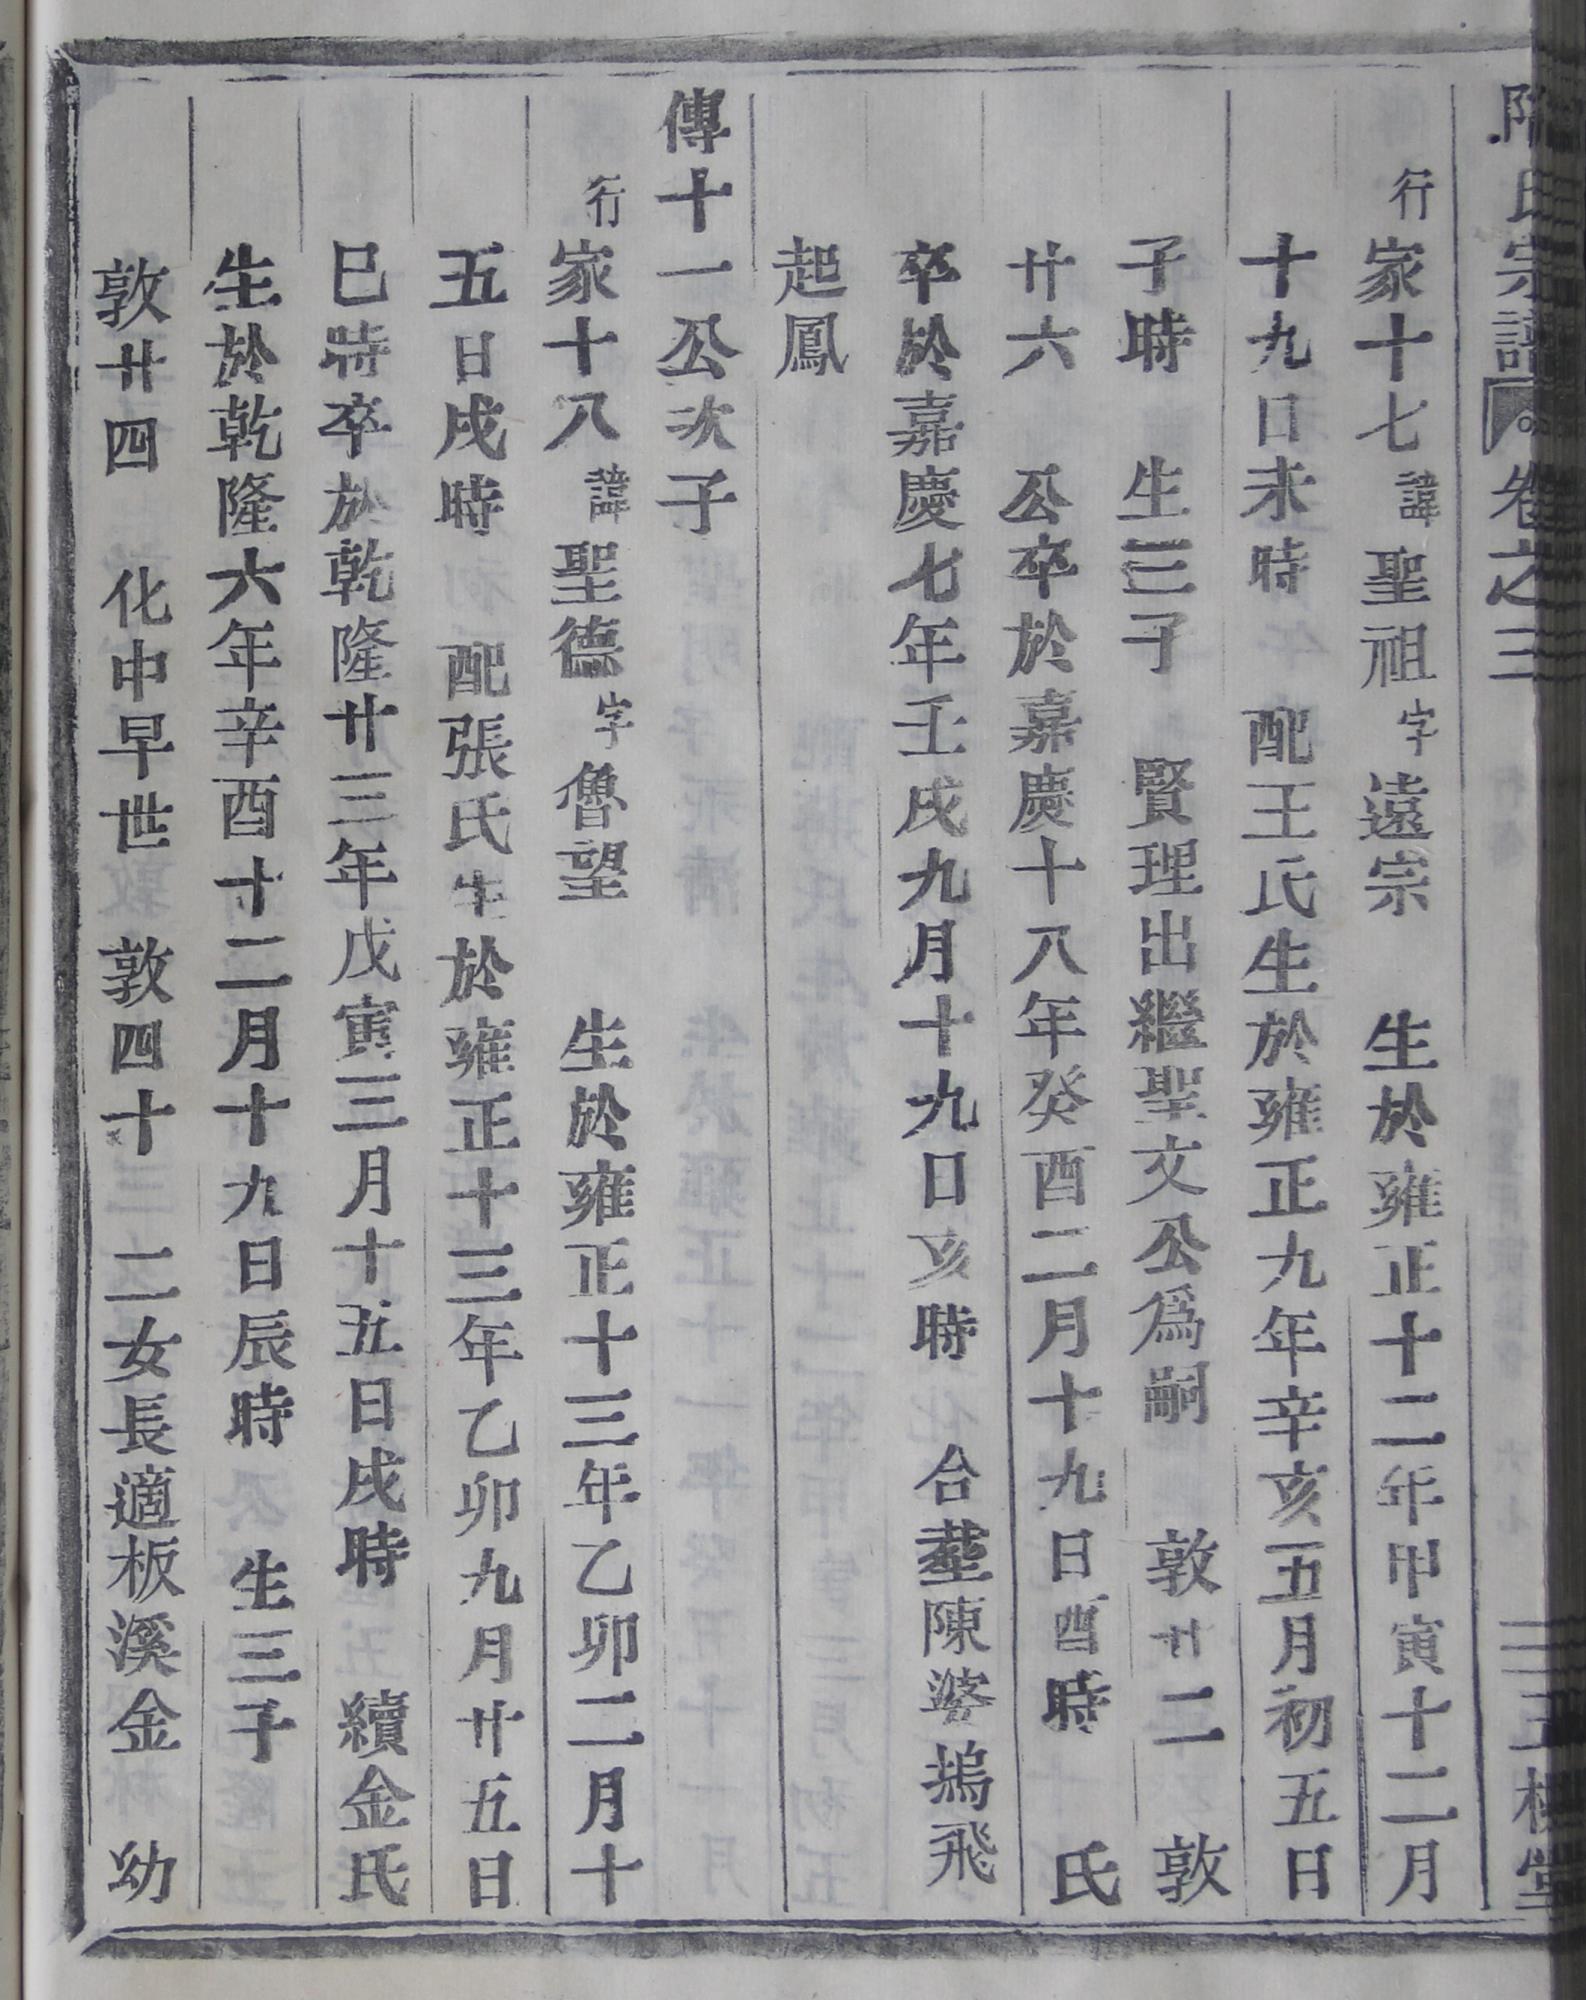 氏宗譜 卷之三 三五槐堂
行家十七諱聖祖字遠宗 生於雍正十二年甲寅十二月
十九日未時 配王氏生於雍正九年辛亥五月初五日
子時 生三子 賢理出繼聖文公爲嗣 敦廿二 敦
廿六 公卒於嘉慶十八年癸酉二月十九日酉時 氏
卒於嘉慶七年壬戌九月十九日亥時 合塟陳婆塢飛
起鳳
傳十一公次子
行家十八諱聖德字魯望 生於雍正十三年乙卯二月十
五日戌時 配張氏生於雍正十三年乙卯九月廿五日
巳時卒於乾隆廿三年戊寅三月十五日戌時 續金氏
生於乾隆六年辛酉十二月十九日辰時 生三子
敦廿四 化中早世 敦四十 二女長適板溪金 幼